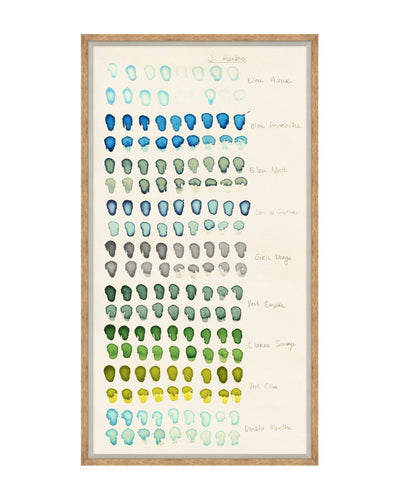 J. Herbin
Bleu Azur
Bleu Pervenche
Bleu Nuit
Gris Nuage
Vert Empire
Lierre Sauvage
Vert Olive
Diabolo Menthe